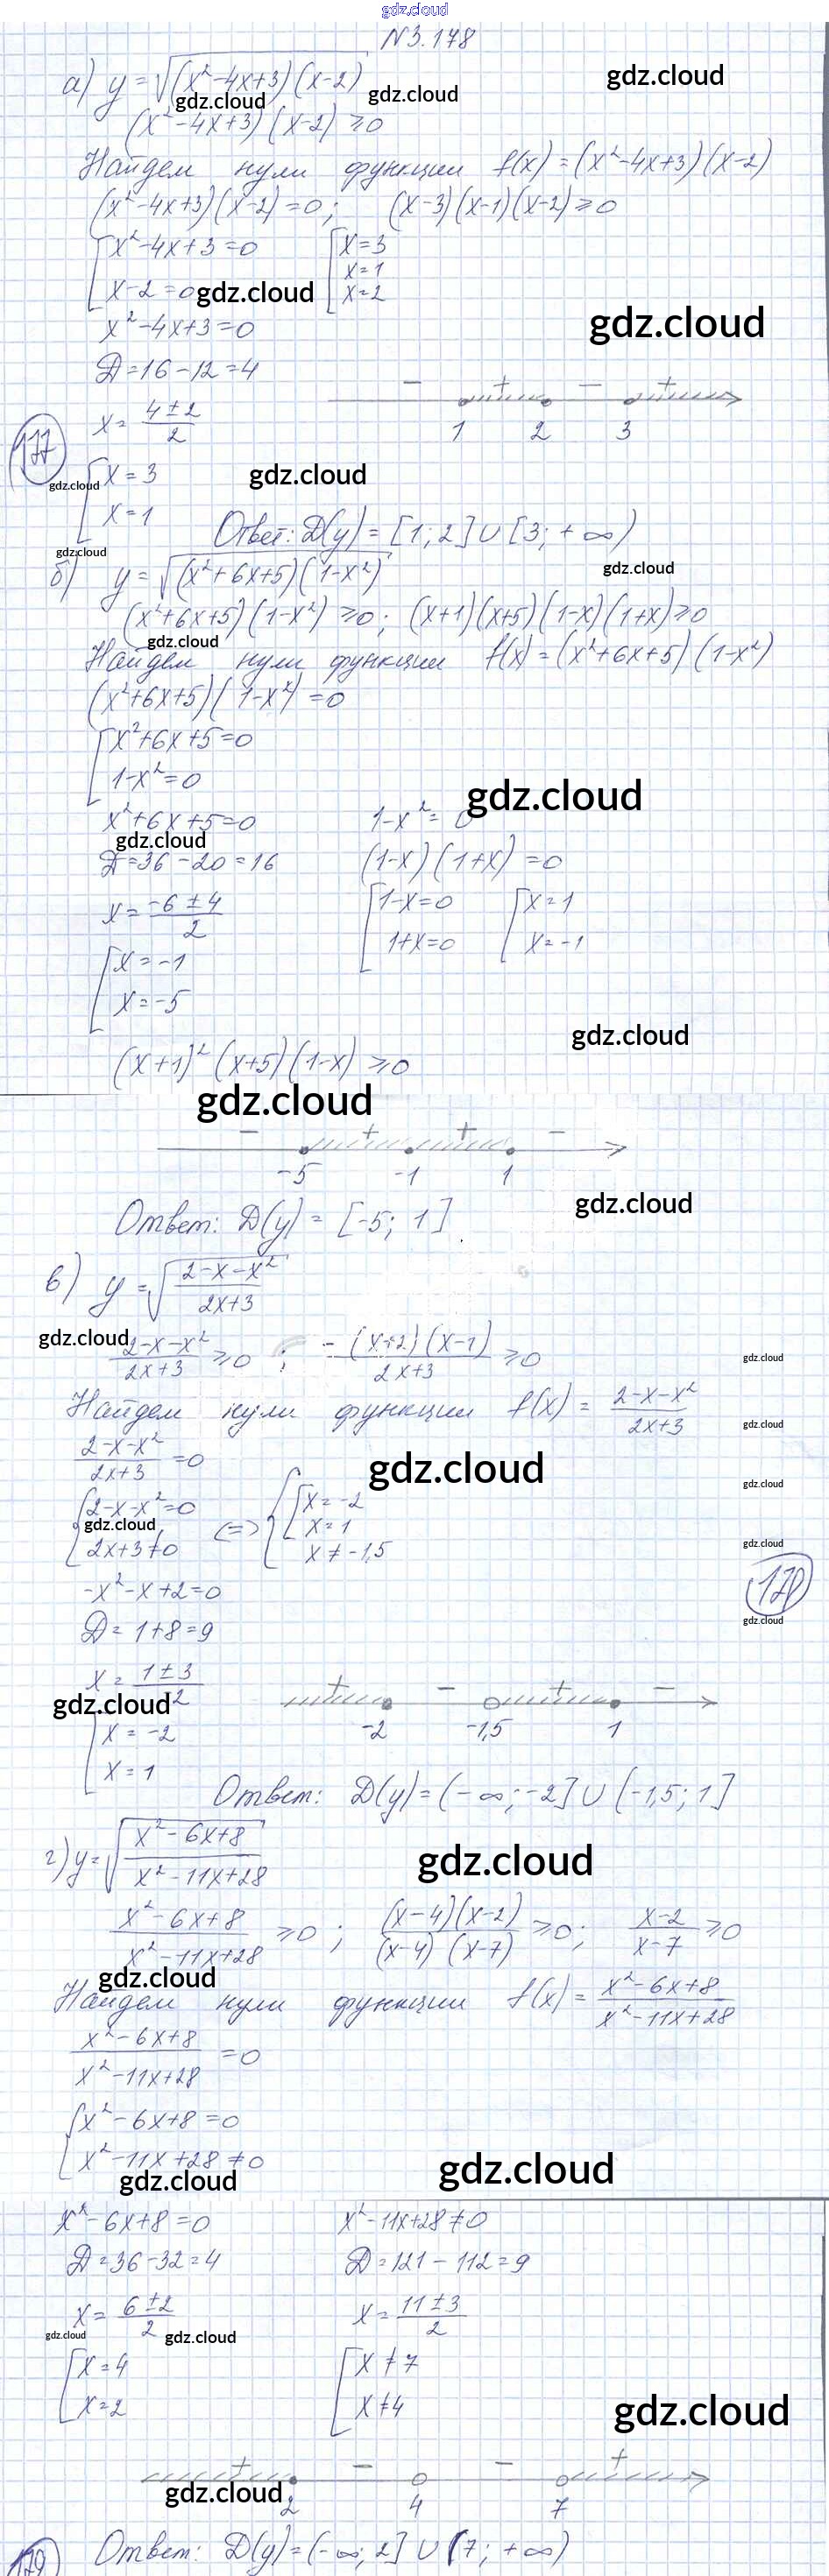 gdz.cloud
N3.178
а) y = √(x²-4x+3)(x-2)
gdz.cloud gdz.cloud gdz.cloud
(x²-4x+3)(x-2) ≥0
Найдем нули функции f(x) = (x²-4x+3)(x-2)
(x²-4x+3)(x-2)=0; (x-3)(x-1)(x-2)≥0
[x²-4x+3=0 [x=3
x=1
x-2=0 gdz.cloud x=2
x²-4x+3=0 gdz.cloud
D=16-12=4
- + - +
x= (4±2)/2 1 2 3
177
[x=3 gdz.cloud
gdz.cloud
x=1 Ответ: D(y) = [1; 2] ∪ [3; +∞)
gdz.cloud
б) y = √(x²+6x+5)(1-x²) gdz.cloud
(x²+6x+5)(1-x²) ≥0; (x+1)(x+5)(1-x)(1+x)≥0
gdz.cloud
Найдем нули функции f(x) = (x²+6x+5)(1-x²)
(x²+6x+5)(1-x²)=0
[x²+6x+5=0
1-x²=0
gdz.cloud
x²+6x+5=0 1-x²=0
gdz.cloud
D=36-20=16 (1-x)(1+x)=0
x= (-6±4)/2 [1-x=0 [x=1
1+x=0 x=-1
[x=-1
x=-5
gdz.cloud
(x+1)²(x+5)(1-x) ≥0
gdz.cloud
- + + -
-5 -1 1
gdz.cloud
Ответ: D(y) = [-5; 1]
в) y = √((2-x-x²)/(2x+3))
gdz.cloud
(2-x-x²)/(2x+3) ≥0; (-(x+2)(x-1))/(2x+3) ≥0
gdz.cloud
Найдем нули функции f(x) = (2-x-x²)/(2x+3)
gdz.cloud
(2-x-x²)/(2x+3) =0
gdz.cloud
gdz.cloud
{2-x-x²=0 <=> {[x=-2
gdz.cloud x=1
2x+3≠0 x≠-1,5
gdz.cloud
-x²-x+2=0 178
D=1+8=9 gdz.cloud
x= (1±3)/-2 + - + -
gdz.cloud
[x=-2 -2 -1,5 1
x=1
Ответ: D(y) = (-∞; -2] ∪ (-1,5; 1]
г) y=√((x²-6x+8)/(x²-11x+28))
gdz.cloud
(x²-6x+8)/(x²-11x+28) ≥0; ((x-4)(x-2))/((x-4)(x-7)) ≥0; (x-2)/(x-7) ≥0
gdz.cloud
Найдем нули функции f(x) = (x²-6x+8)/(x²-11x+28)
(x²-6x+8)/(x²-11x+28) =0
{x²-6x+8=0
x²-11x+28≠0
gdz.cloud gdz.cloud
x²-6x+8=0 x²-11x+28≠0
D=36-32=4 D=121-112=9
x= (6±2)/2 x= (11±3)/2
gdz.cloud gdz.cloud
[x=4 [x≠7
x=2 x≠4
gdz.cloud
+ - - +
gdz.cloud
2 4 7
179 Ответ: D(y) = (-∞; 2] ∪ (7; +∞)